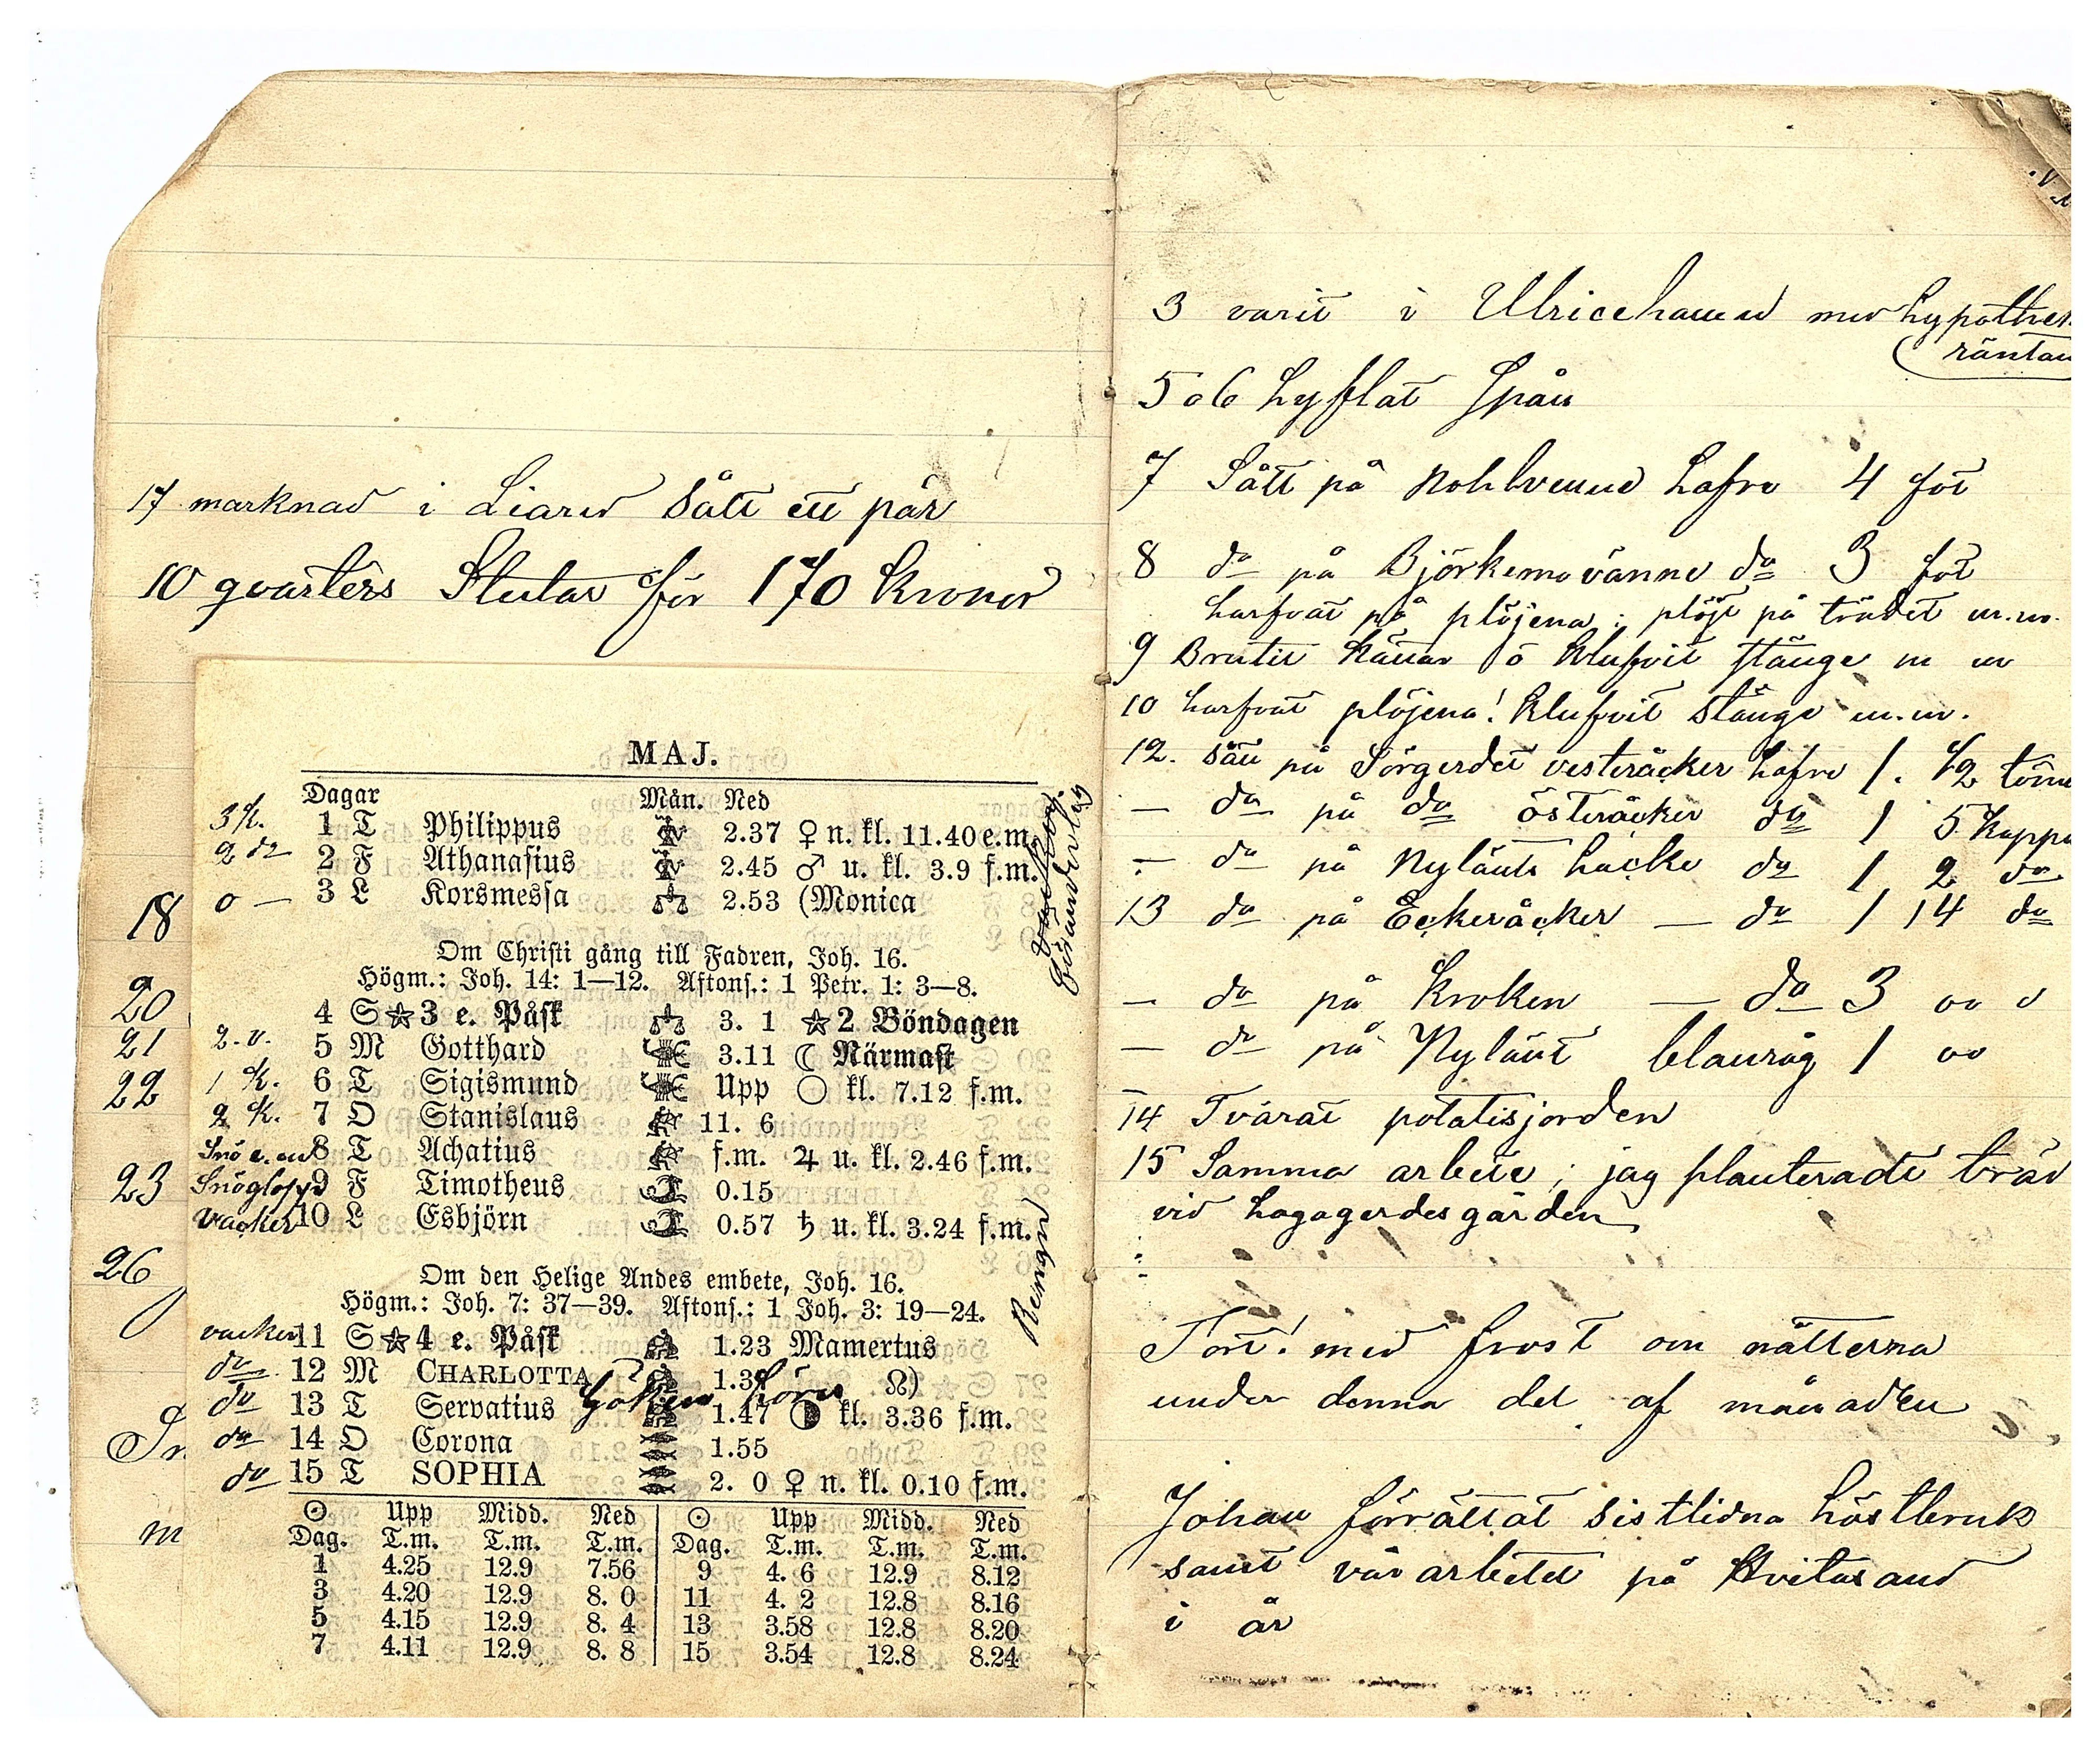 17 marknad i Liared sålt ett par
10 qvarters Stutar för 170 kronor
18
20
21
22
23
26
m
MAJ.
Dagar Mån. Ned
3 k. 1 T Philippus 2.37 ♀ n. kl. 11.40 e.m.
2 do 2 F Athanasius 2.45 ♂ u. kl. 3.9 f.m.
0 — 3 L Korsmessa 2.53 (Monica
Om Christi gång till Fadren, Joh. 16.
Högm.: Joh. 14: 1—12. Aftons.: 1 Petr. 1: 3—8.
4 S☆3 e. Påsk 3. 1 ☆2 Böndagen
2.v. 5 M Gotthard 3.11 ☾ Närmast
1 k. 6 T Sigismund Upp ○ kl. 7.12 f.m.
2 k. 7 O Stanislaus 11. 6
Snö e.m 8 T Achatius f.m. ♃ u. kl. 2.46 f.m.
Snöglopp 9 F Timotheus 0.15
Vacker 10 L Esbjörn 0.57 ♄ u. kl. 3.24 f.m.
Om den Helige Andes embete, Joh. 16.
Högm.: Joh. 7: 37—39. Aftons.: 1 Joh. 3: 19—24.
vacker 11 S☆4 e. Påsk 1.23 Mamertus
do 12 M CHARLOTTA 1.3 ☊)
Göken hörs
do 13 T Servatius 1.47 kl. 3.36 f.m.
do 14 O Corona 1.55
do 15 T SOPHIA 2. 0 ♀ n. kl. 0.10 f.m.
☉ Upp Midd. Ned ☉ Upp Midd. Ned
Dag. T.m. T.m. T.m. Dag. T.m. T.m. T.m.
1 4.25 12.9 7.56 9 4. 6 12.9 8.12
3 4.20 12.9 8. 0 11 4. 2 12.8 8.16
5 4.15 12.9 8. 4 13 3.58 12.8 8.20
7 4.11 12.9 8. 8 15 3.54 12.8 8.24
3 varit i Ulricehamn med hypothek
räntan
5 o 6 hyflat Spån
7 Sått på hafre 4 for
8 do på do 3 for
harfvat på plöjena; plöjt på trädet m.m.
9 Brutit o klufvit stänge m m
10 harfvat plöjena! klufvit stänge m.m.
12. sått på Sörgerdet vesteråcker hafre 1. 1/2
— do på do österåcker do 1 5 kappa
— do på Nylänt hacke do 1 2 do
13 do på Eckeråcker — do 1 14 do
— do på Kroken — do 3
— do på Nylänt blanråg 1
14 Tvärat potatisjorden
15 Samma arbete; jag planterade träd
vid hagagerdesgården
Tort! med frost om nätterna
under denna del af månaden
Johan förrättat sistlidna höstbruk
samt vårarbetet på Hvitasand
i år